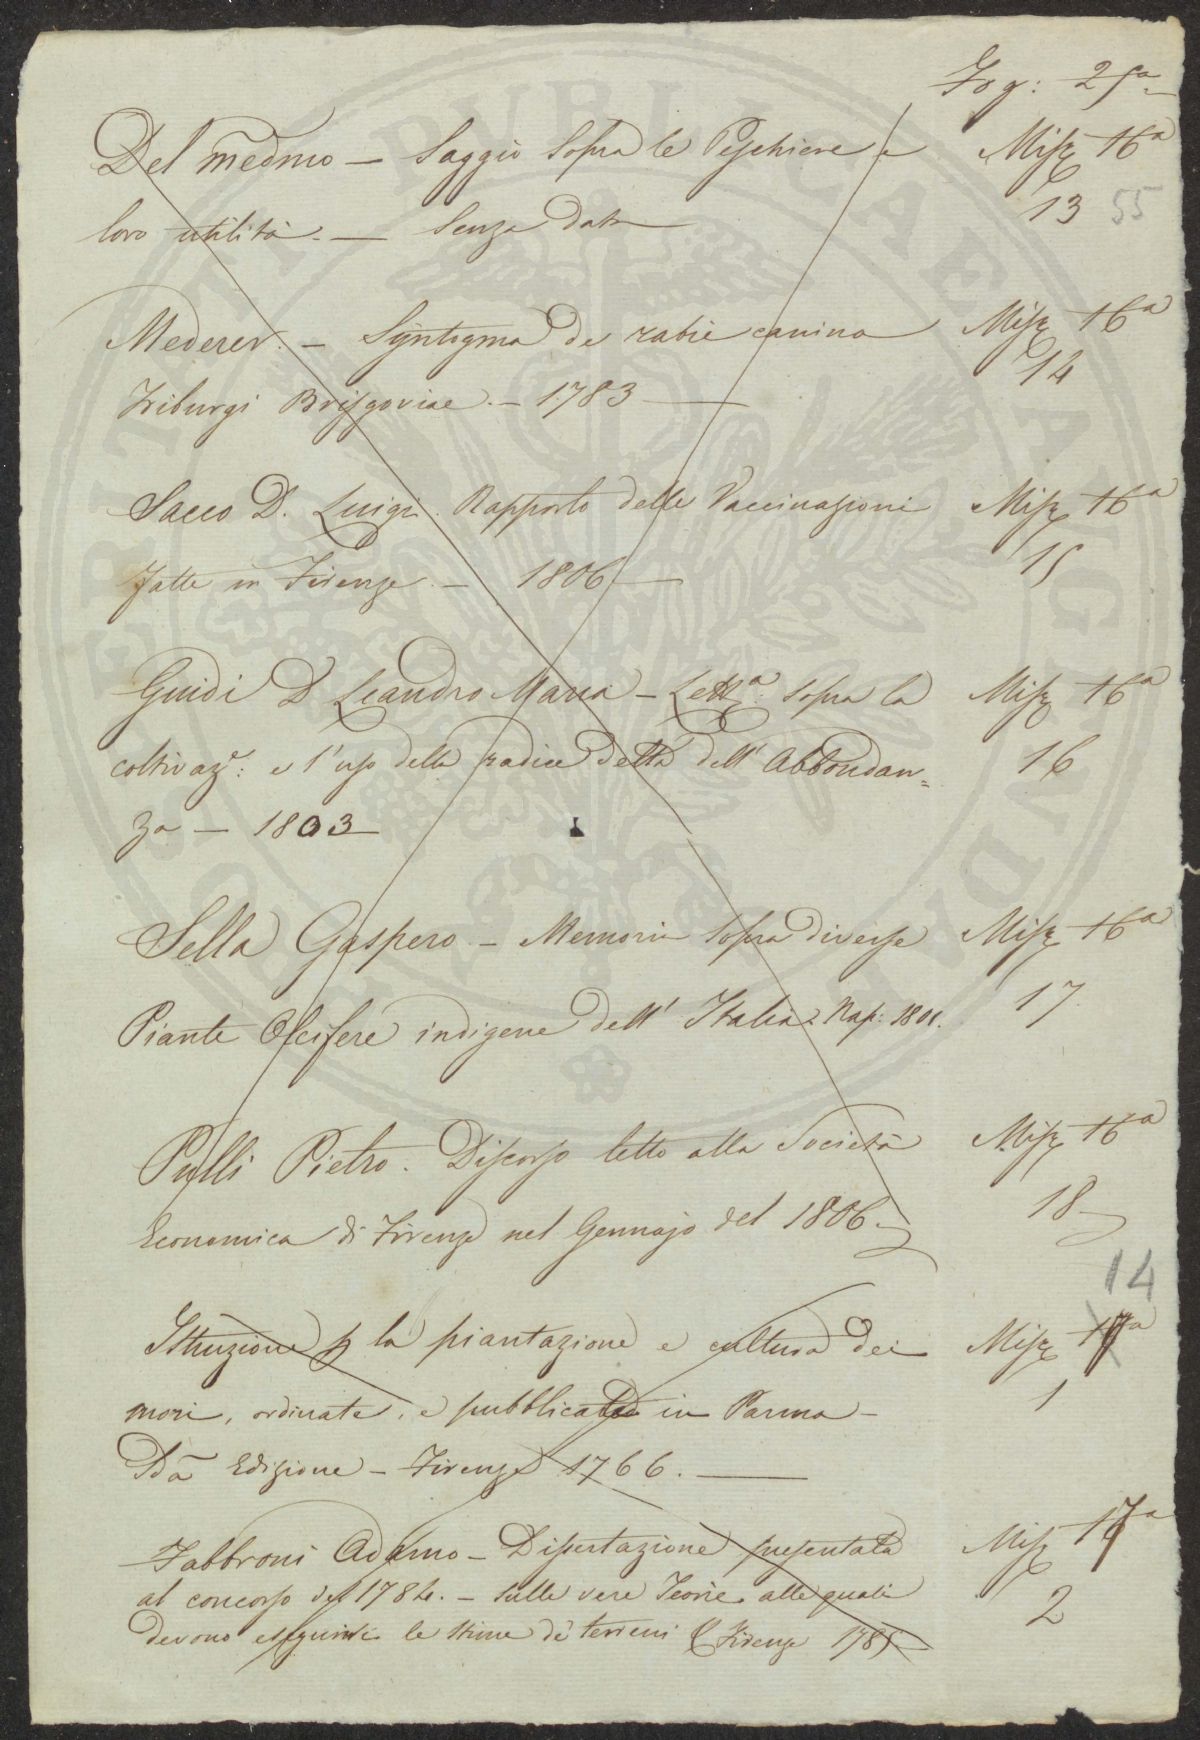 Fog: 25a
Del medmo — Saggio sopra le Peschiere e Misc 16a
loro utilità. — Senza data 13 55
Mederer. — Syntagma de rabie canina Misc 16a
Friburgi Brisgoviae. — 1783 — 14
Sacco D. Luigi. Rapporto delle Vaccinazioni Misc 16a
fatte in Firenze. — 1806 — 15
Guidi D Leandro Maria — Letta. sopra la Misc 16a
coltivaze: e l'uso della radice detta dell'Abbondan= 16
za — 1803 —
Sella Gaspero — Memoria sopra diverse Misc 16a
Piante Oleifere indigene dell'Italia. Nap: 1801. 17
Pulli Pietro. Discorso letto alla Società Misc 16a
Economica di Firenze nel Gennajo del 1806. 18
14
Istruzione p la piantazione e cultura dei Misc 17a
mori, ordinate, e pubblicate in Parma — 1
2da Edizione — Firenze 1766. —
Fabbroni Adamo — Dissertazione presentata Misc 17a
al concorso del 1784. — sulle vere Teorie alle quali 2
devono eseguirsi le stime de' terreni Firenze 1785